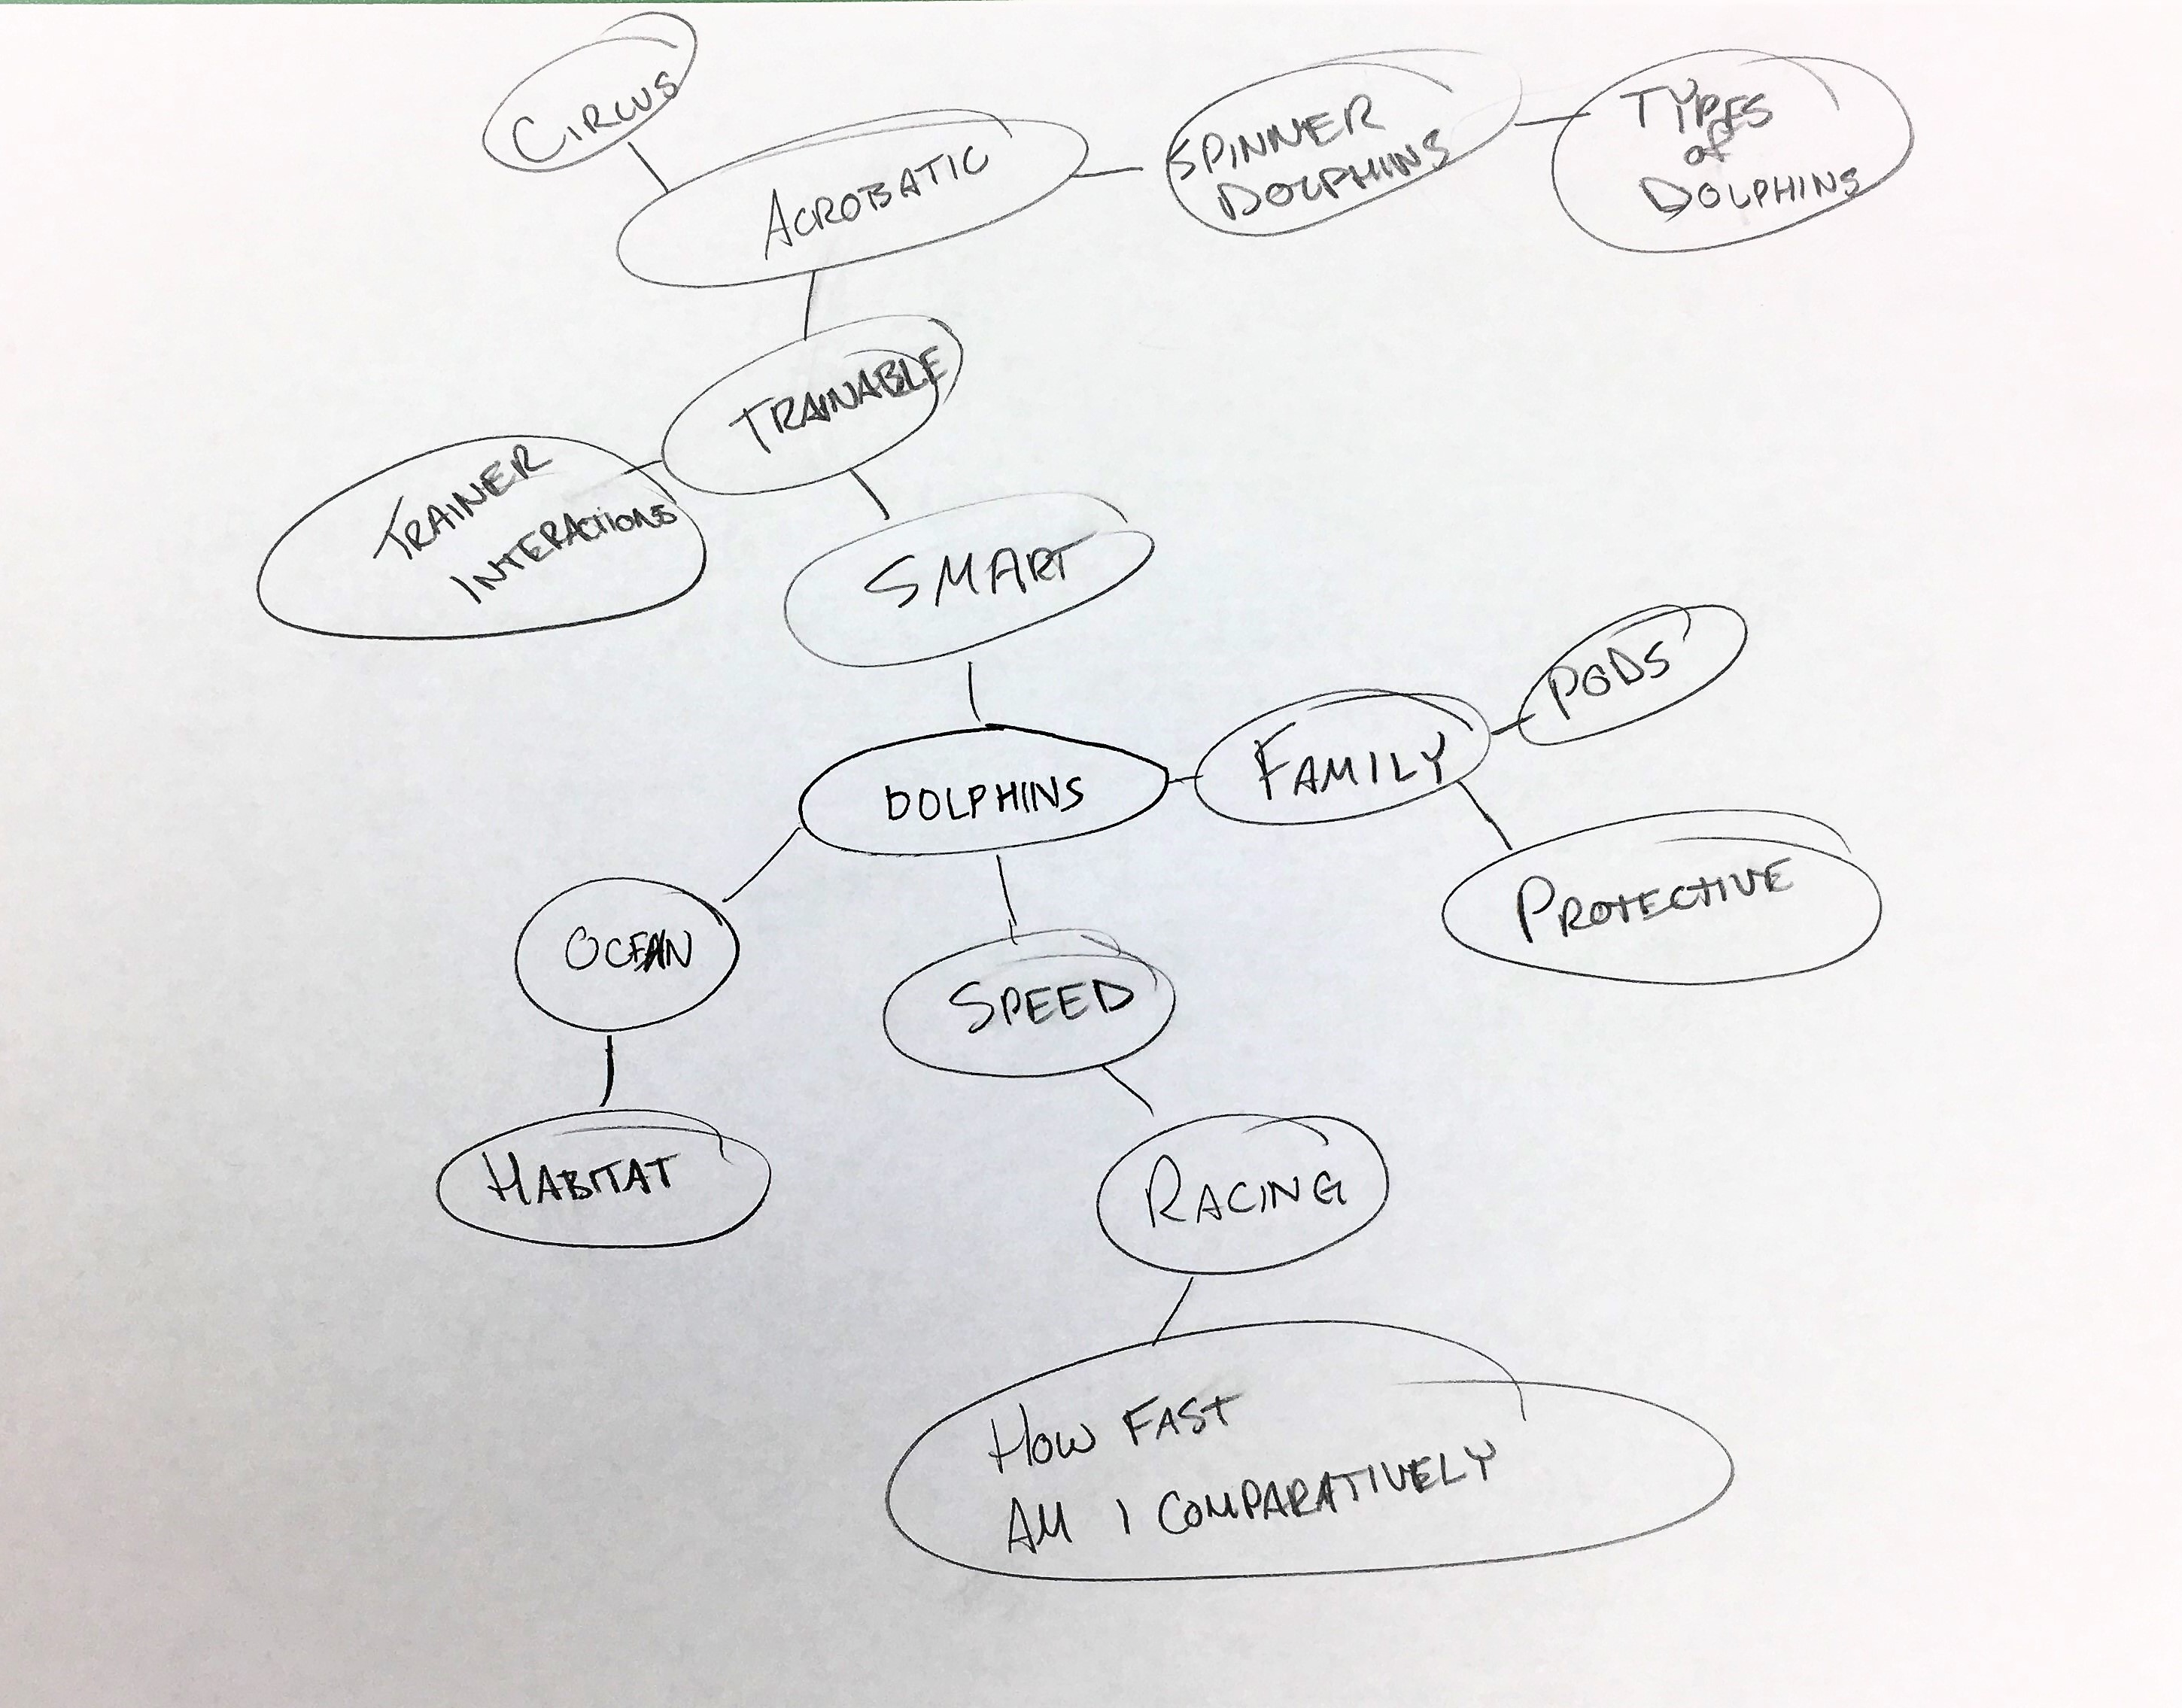 CIRCUS
ACROBATIC
SPINNER
DOLPHINS
TYPES
of
DOLPHINS
TRAINABLE
TRAINER
INTERACTIONS
SMART
PODS
DOLPHINS
FAMILY
PROTECTIVE
OCEAN
SPEED
HABITAT
RACING
HOW FAST
AM I COMPARATIVELY